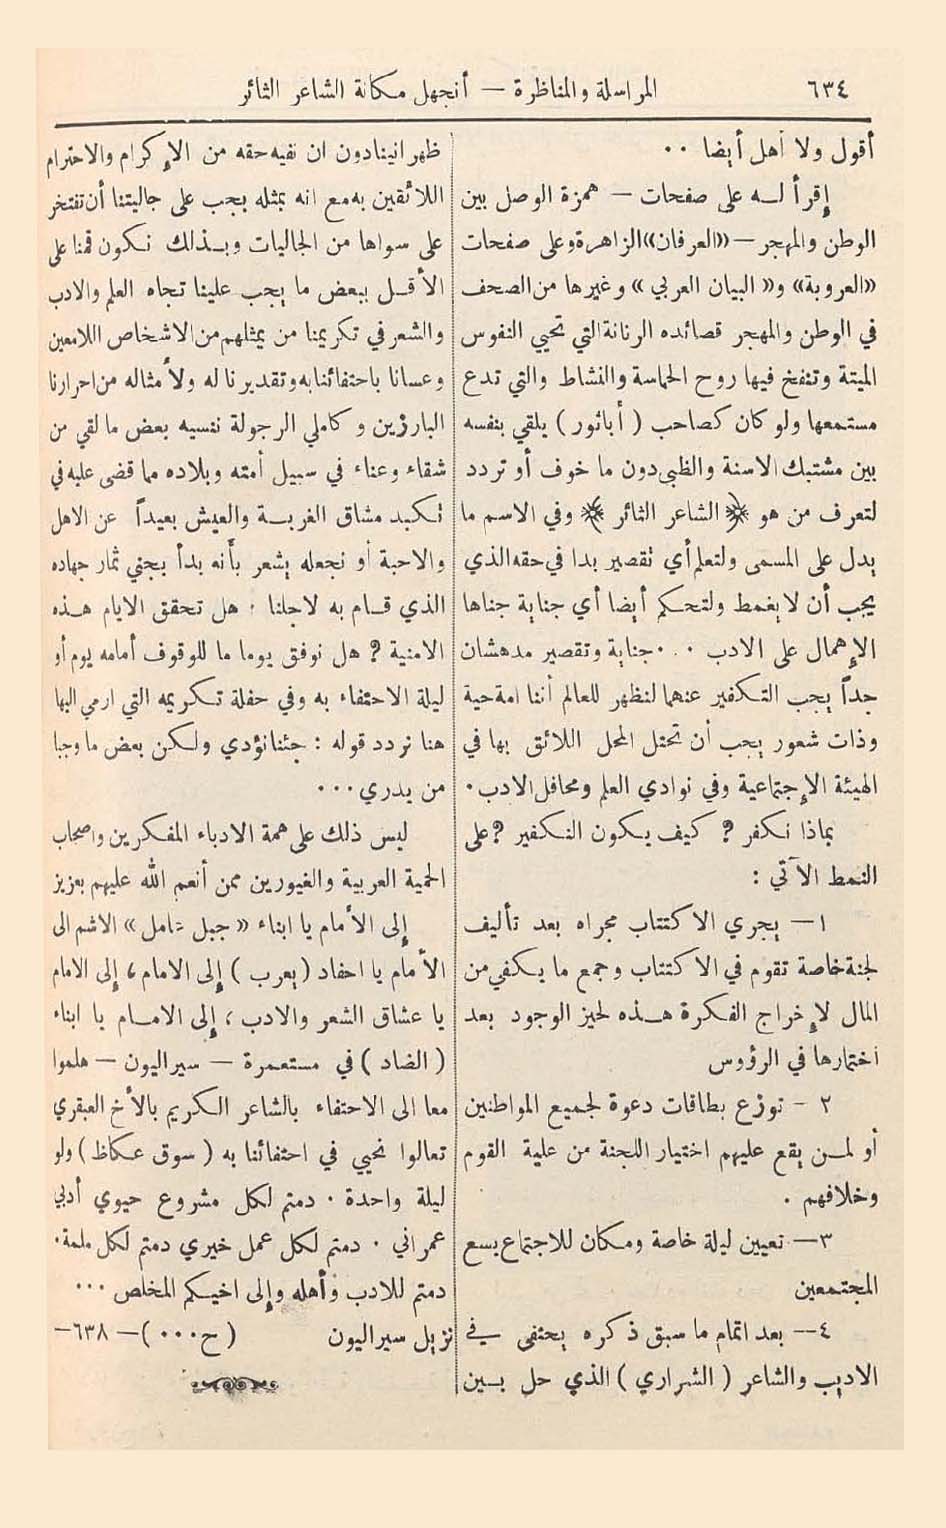 ٦٣٤
المراسلة والمناظرة — أنجهل مكانة الشاعر الثائر
أقول ولا أهل أيضا ..
إقرأ له على صفحات — همزة الوصل بين
الوطن والمهجر — «العرفان» الزاهرة وعلى صفحات
«العروبة» و« البيان العربي » وغيرها من الصحف
في الوطن والمهجر قصائده الرنانة التي تحيي النفوس
الميتة وتنفخ فيها روح الحماسة والنشاط والتي تدع
مستمعها ولو كان كصاحب ( أباثور ) يلقي بنفسه
بين مشتبك الاسنة والظبى دون ما خوف أو تردد
لتعرف من هو ﴿ الشاعر الثائر ﴾ وفي الاسم ما
يدل على المسمى ولتعلم أي تقصير بدا في حقه الذي
يجب أن لا يغمط ولتحكم أيضا أي جناية جناها
الإهمال على الادب ... جناية وتقصير مدهشان
جداً يجب التكفير عنهما لنظهر للعالم أننا امة حية
وذات شعور يجب أن تحتل المحل اللائق بها في
الهيئة الإجتماعية وفي نوادي العلم ومحافل الادب.
بماذا نكفر ? كيف يكون التكفير ? على
النمط الآتي :
١ — يجري الاكتتاب مجراه بعد تأليف
لجنة خاصة تقوم في الاكتتاب وجمع ما يكفي من
المال لإخراج الفكرة هذه لحيز الوجود بعد
اختمارها في الرؤوس
٢ - توزع بطاقات دعوة لجميع المواطنين
أو لمن يقع عليهم اختيار اللجنة من علية القوم
وخلافهم .
٣ — تعيين ليلة خاصة ومكان للاجتماع يسع
المجتمعين
٤ — بعد اتمام ما سبق ذكره يحتفى في
الاديب والشاعر ( الشراري ) الذي حل بين
ظهرانينا دون ان نفيه حقه من الإكرام والاحترام
اللائقين به مع انه بمثله يجب على جاليتنا أن تفتخر
على سواها من الجاليات وبذلك نكون قمنا على
الأقل ببعض ما يجب علينا تجاه العلم والادب
والشعر في تكريمنا من يمثلهم من الاشخاص اللامعين
وعسانا باحتفائنا به وتقديرنا له ولأمثاله من احرارنا
البارزين وكاملي الرجولة ننسيه بعض ما لقي من
شقاء وعناء في سبيل أمته وبلاده مما قضى عليه في
تكبد مشاق الغربة والعيش بعيداً عن الاهل
والاحبة أو نجعله يشعر بأنه بدأ يجني ثمار جهاده
الذي قام به لاجلنا . هل تحقق الايام هذه
الامنية ? هل نوفق يوما ما للوقوف أمامه يوم أو
ليلة الاحتفاء به وفي حفلة تكريمه التي ارمي اليها
هنا نردد قوله : جئنا نؤدي ولكن بعض ما وجبا
من يدري ...
ليس ذلك على همة الادباء المفكرين واصحاب
الحمية العربية والغيورين ممن أنعم الله عليهم بعزيز
إلى الأمام يا ابناء « جبل عامل » الاشم الى
الأمام يا احفاد ( يعرب ) إلى الامام ، إلى الامام
يا عشاق الشعر والادب ، إلى الامام يا ابناء
( الضاد ) في مستعمرة — سيراليون — هلموا
معا الى الاحتفاء بالشاعر الكريم بالأخ العبقري
تعالوا نحيي في احتفائنا به ( سوق عكاظ ) ولو
ليلة واحدة . دمتم لكل مشروع حيوي أدبي
عمراني . دمتم لكل عمل خيري دمتم لكل ملمة.
دمتم للادب وأهله وإلى اخيكم المخلص ...
نزيل سيراليون ( ح... ) — ٦٣٨ —